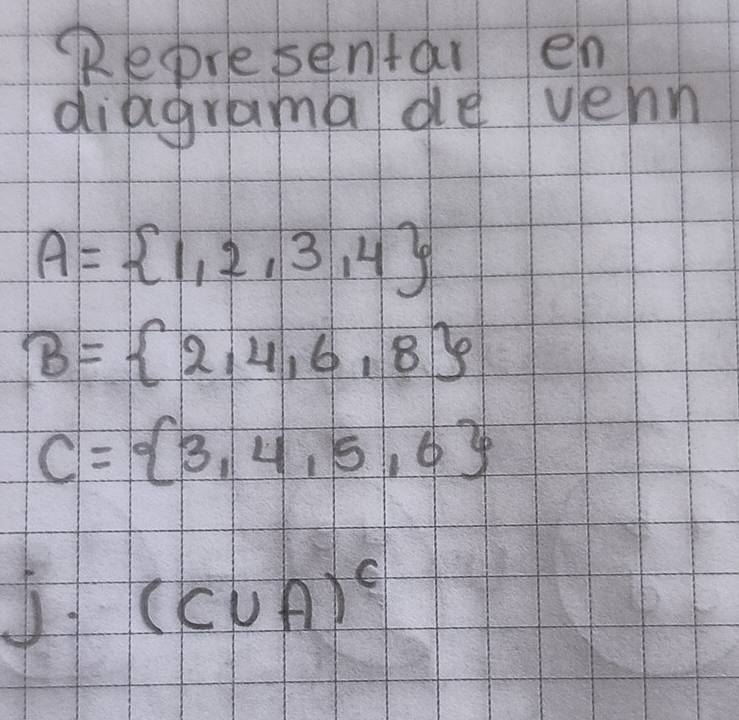 Representar en
diagrama de venn
A = {1, 2, 3, 4}
B = {2, 4, 6, 8}
C = {3, 4, 5, 6}
j. (C U A)ᶜ